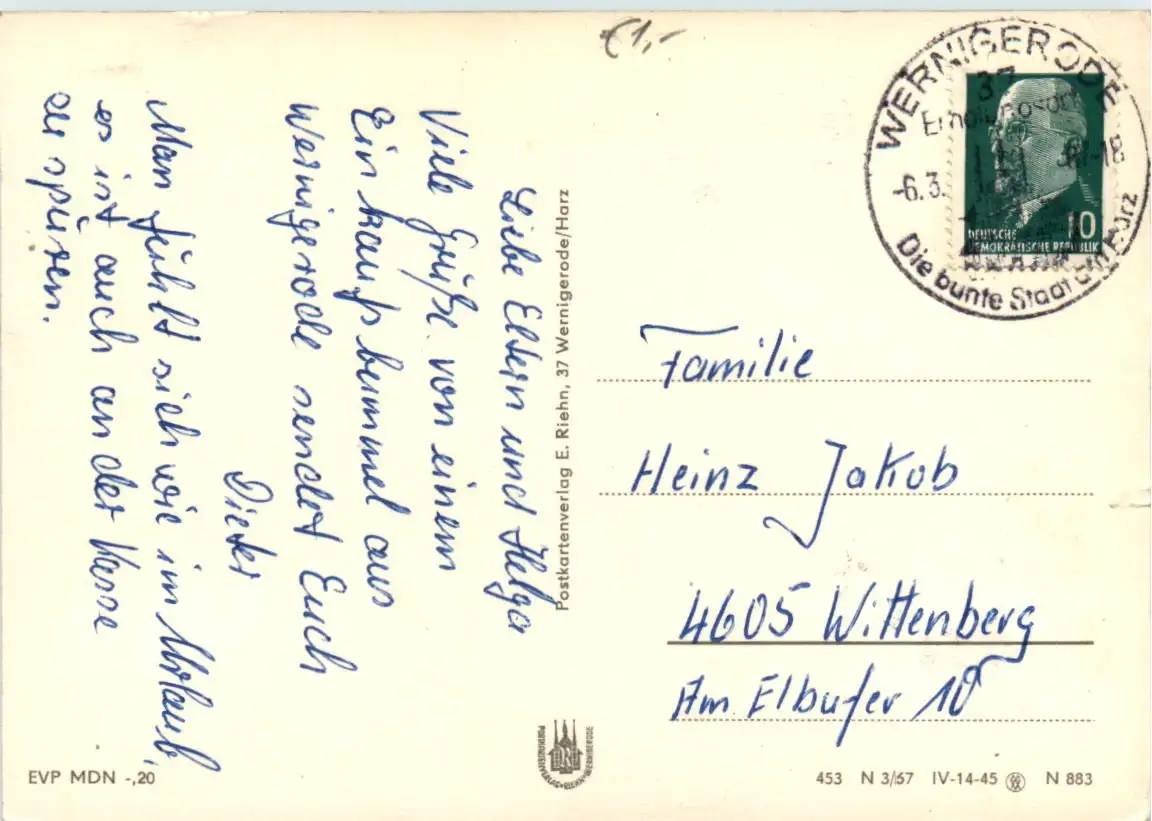 €1,-
WERNIGERODE
37
-6.3.
-18
Die bunte Stadt am Harz
10
DEUTSCHE
DEMOKRATISCHE REPUBLIK
Liebe Eltern und Helga
Viele Grüße von einem
Einkaufsbummel aus
Wernigerode sendet Euch
Dieter
Man fühlt sich wie im Urlaub,
es ist auch an der Kasse
zu spüren.
Postkartenverlag E. Riehn, 37 Wernigerode/Harz
Familie
Heinz Jakob
4605 Wittenberg
Am Elbufer 10
POSTKARTENVERLAG•RIEHN•WERNIGERODE
EVP MDN -,20
453 N 3/67 IV-14-45 N 883